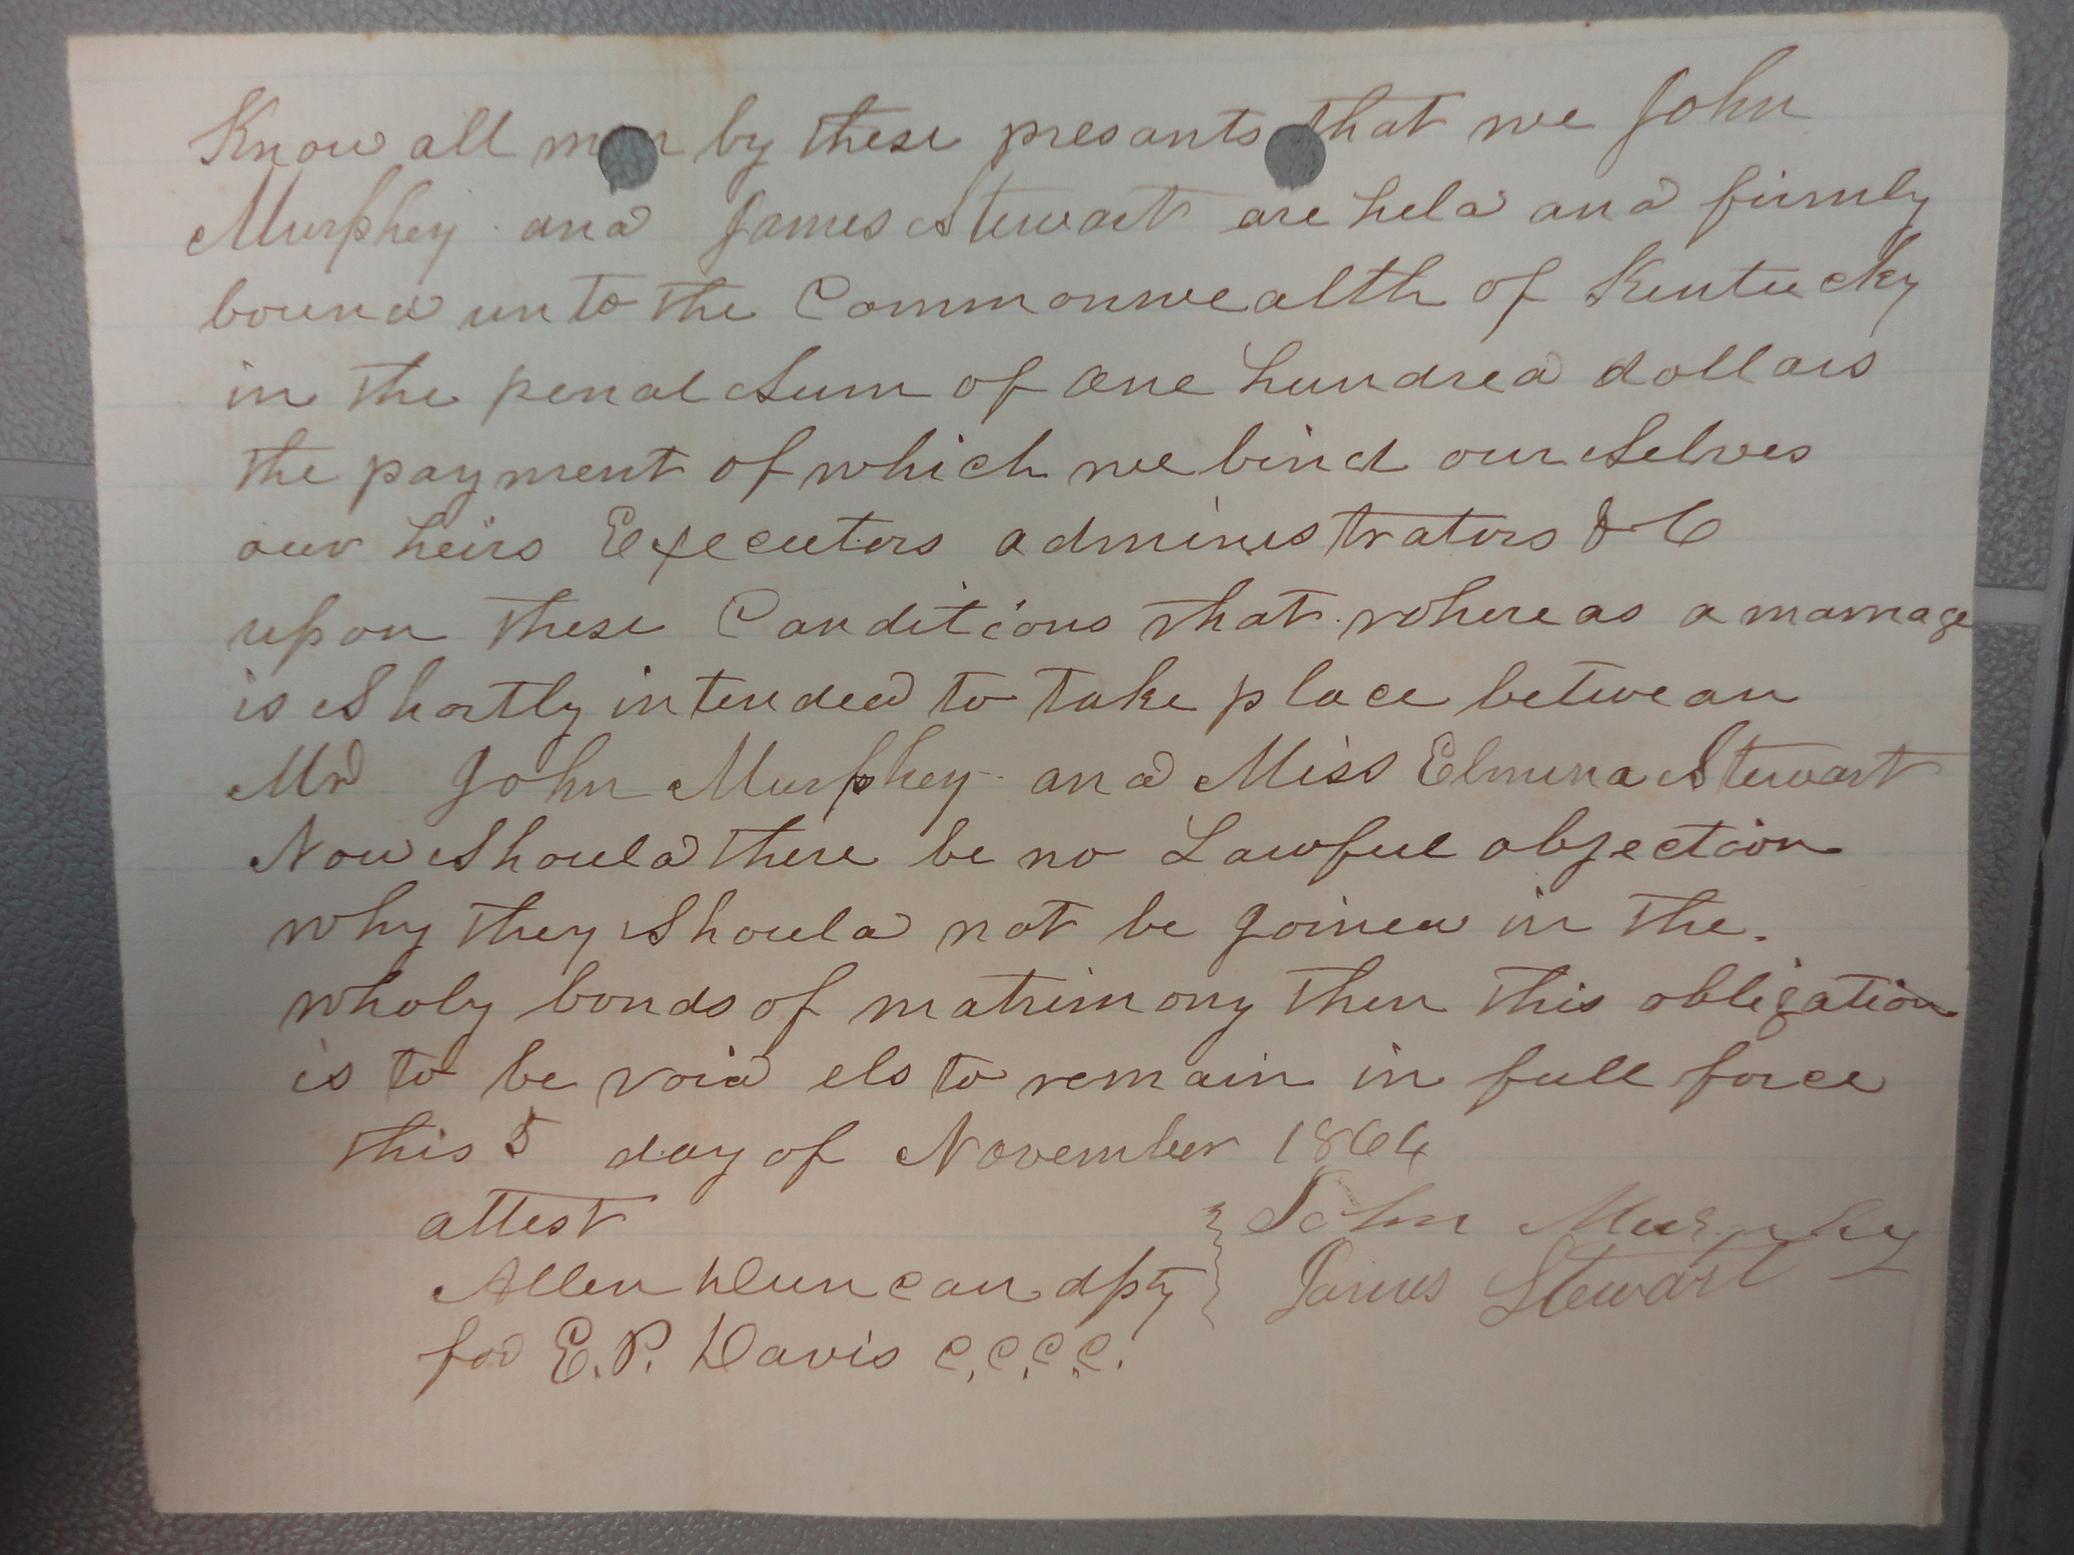 Know all men by these presants that we John
Murphey and James Stewart are held and firmly
bound unto the Commonwealth of Kentucky
in the penal Sum of one hundred dollars
the payment of which we bind our Selves
our heirs Executors administrators &C
upon these Conditions that whereas a marriage
is Shortly intended to take place betwean
Mr John Murphey and Miss Elmina Stewart
Now Should there be no Lawful objection
why they Should not be Joined in the.
wholy bonds of matrimony then this obligation
is to be void els to remain in full force
this 5 day of November 1864
attest
Allen Duncan dpty
for E.P. Davis C.C.C.C.
John Murphey
James Stewart